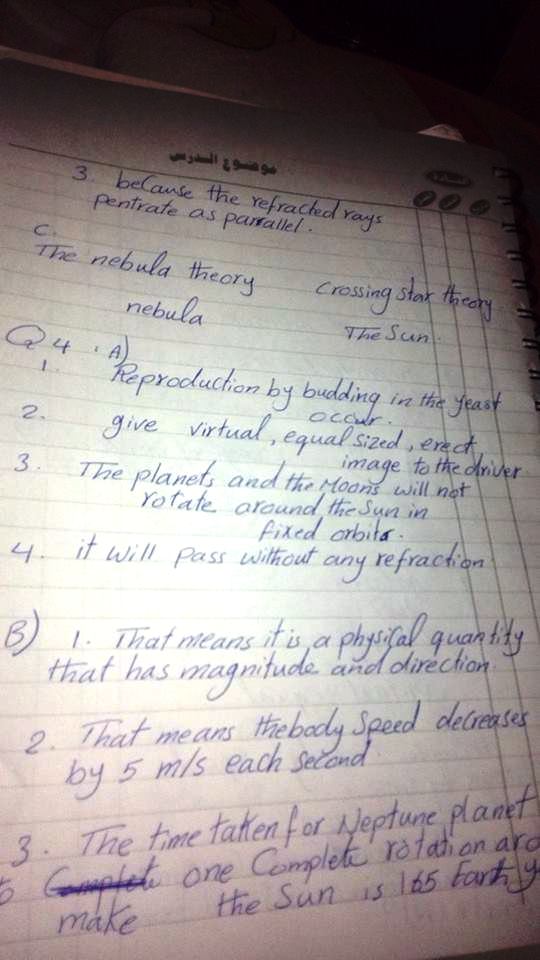 موضوع الدرس
3. because the refracted rays
pentrate as parrallel.
C.
The nebula theory    Crossing star theory
nebula    The Sun.
Q 4. A)
1. Reproduction by budding in the yeast
occur.
2. give virtual, equal sized, erect
image to the driver
3. The planets and the Moons will not
rotate around the Sun in
fixed orbits.
4. it will pass without any refraction
B) 1. That means it is a physical quantity
that has magnitude and direction.
2. That means thebody speed decreases
by 5 m/s each second
3. The time taken for Neptune planet
to one Complete rotation aro
make the Sun is 165 Earth y